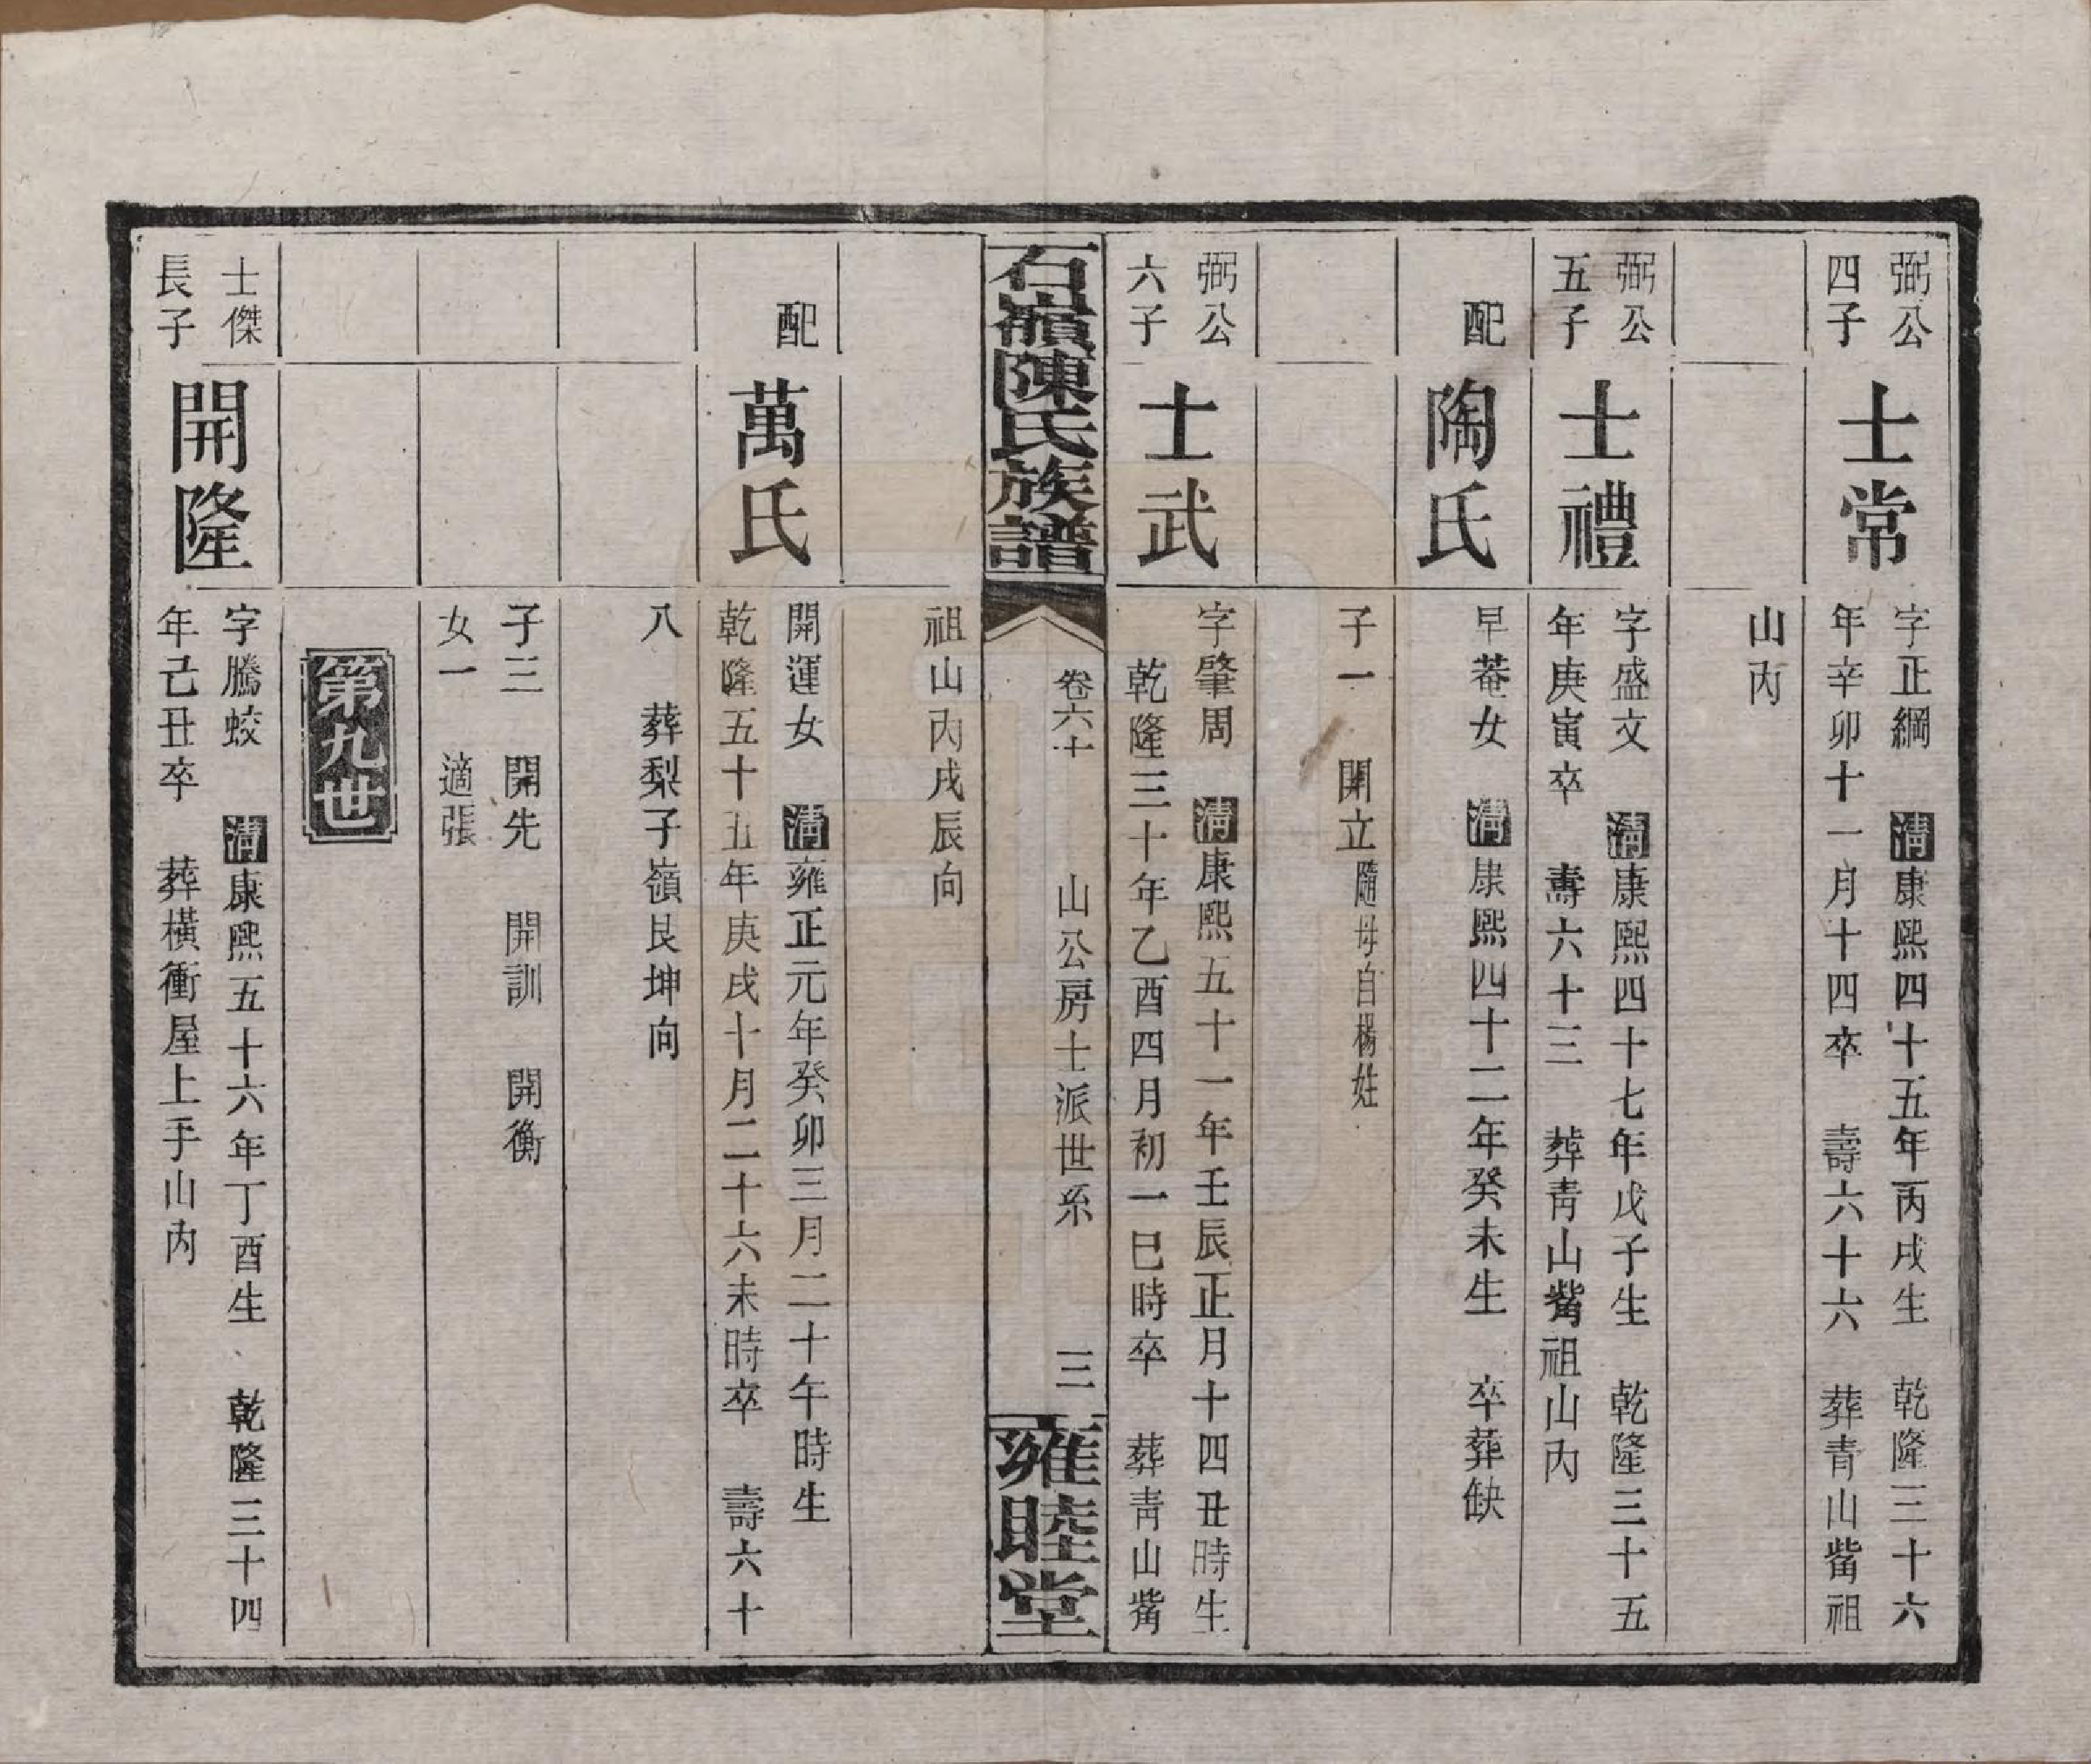 弼公
四子
士常
字正綱　清康熙四十五年丙戌生　乾隆三十六
年辛卯十一月十四卒　壽六十六　葬青山觜祖
山內
弼公
五子
士禮
字盛文　清康熙四十七年戊子生　乾隆三十五
年庚寅卒　壽六十三　葬青山觜祖山內
配
陶氏
早菴女　清康熙四十二年癸未生　卒葬缺
子一　開立隨母自楊姓
弼公
六子
士武
字肇周　清康熙五十一年壬辰正月十四丑時生
乾隆三十年乙酉四月初一巳時卒　葬青山觜
石嶺陳氏族譜
卷六十　山公房士派世系　三
雍睦堂
祖山內戌辰向
配
萬氏
開運女　清雍正元年癸卯三月二十午時生
乾隆五十五年庚戌十月二十六未時卒　壽六十
八　葬梨子嶺艮坤向
子三　開先　開訓　開衡
女一　適張
第九世
士傑
長子
開隆
字騰蛟　清康熙五十六年丁酉生　乾隆三十四
年己丑卒　葬橫衝屋上手山內